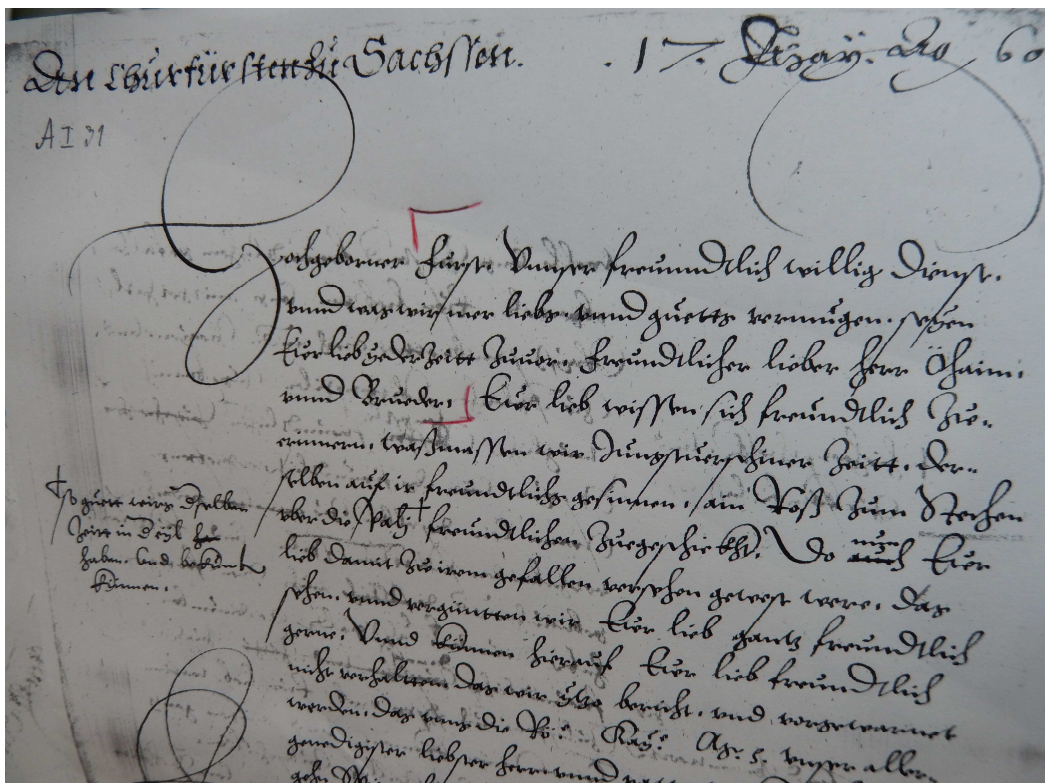 Den Churfürsten zu Sachssen. .17. May. Ao 60
A I 31
Hochgeborner Furst. Vnnser freunndtlich willig Dienst.
vnnd was wir mer liebs. vnnd guetts vermügen. seyen
Eur lieb yeder Zeitt Zuuor. Freundtlicher lieber Herr Öhaim.
vnnd Brueder. Eur lieb wissen sich freundtlich Zue=
erinnern. wasmassen wir Jungstuerschiner Zeitt. der=
selben auf ir freundtlichs gesinnen. ain Roß Zum Stechen
vber die Paly † freundtlichen Zuegeschickht. Do nun Eur
lieb damit Zu irem gefallen versehen gewest were. das
sehen. vnnd vergunten wir Eur lieb gantz freundtlich
gerne. Vnnd künnen hierauf Eur lieb freundtlich
nicht verhaltten das wir yzo bericht. vnd. vorgewarnet
werden. das vnns die Rö: Kay: Mt: vnnser aller
genedigister liebster herr vnnd
† so guett wirs derselben
Zeit in eyl
haben. vnd bekomen
künnen.